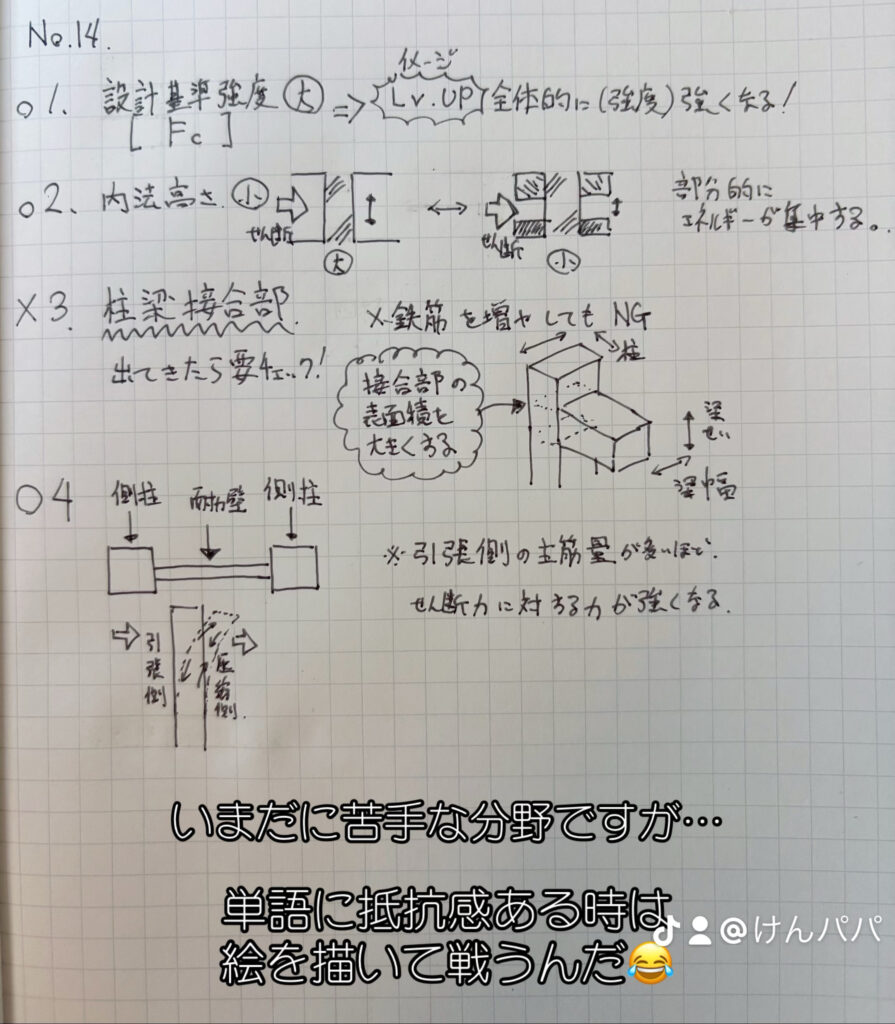 No.14.
イメージ
○1. 設計基準強度 大 ⇒ Lv.UP 全体的に(強度)強くなる!
[ Fc ]
○2. 内法高さ 小
せん断
大
↔
せん断
小
部分的に
エネルギーが集中する。
×3. 柱梁接合部
出てきたら要チェック!
×鉄筋を増やしてもNG
接合部の
表面積を
大きくする
柱
梁せい
梁幅
○4 側柱 耐力壁 側柱
引張側
圧縮側
※引張側の主筋量が多いほど.
せん断力に対する力が強くなる.
いまだに苦手な分野ですが…
単語に抵抗感ある時は
絵を描いて戦うんだ😂
@けんパパ